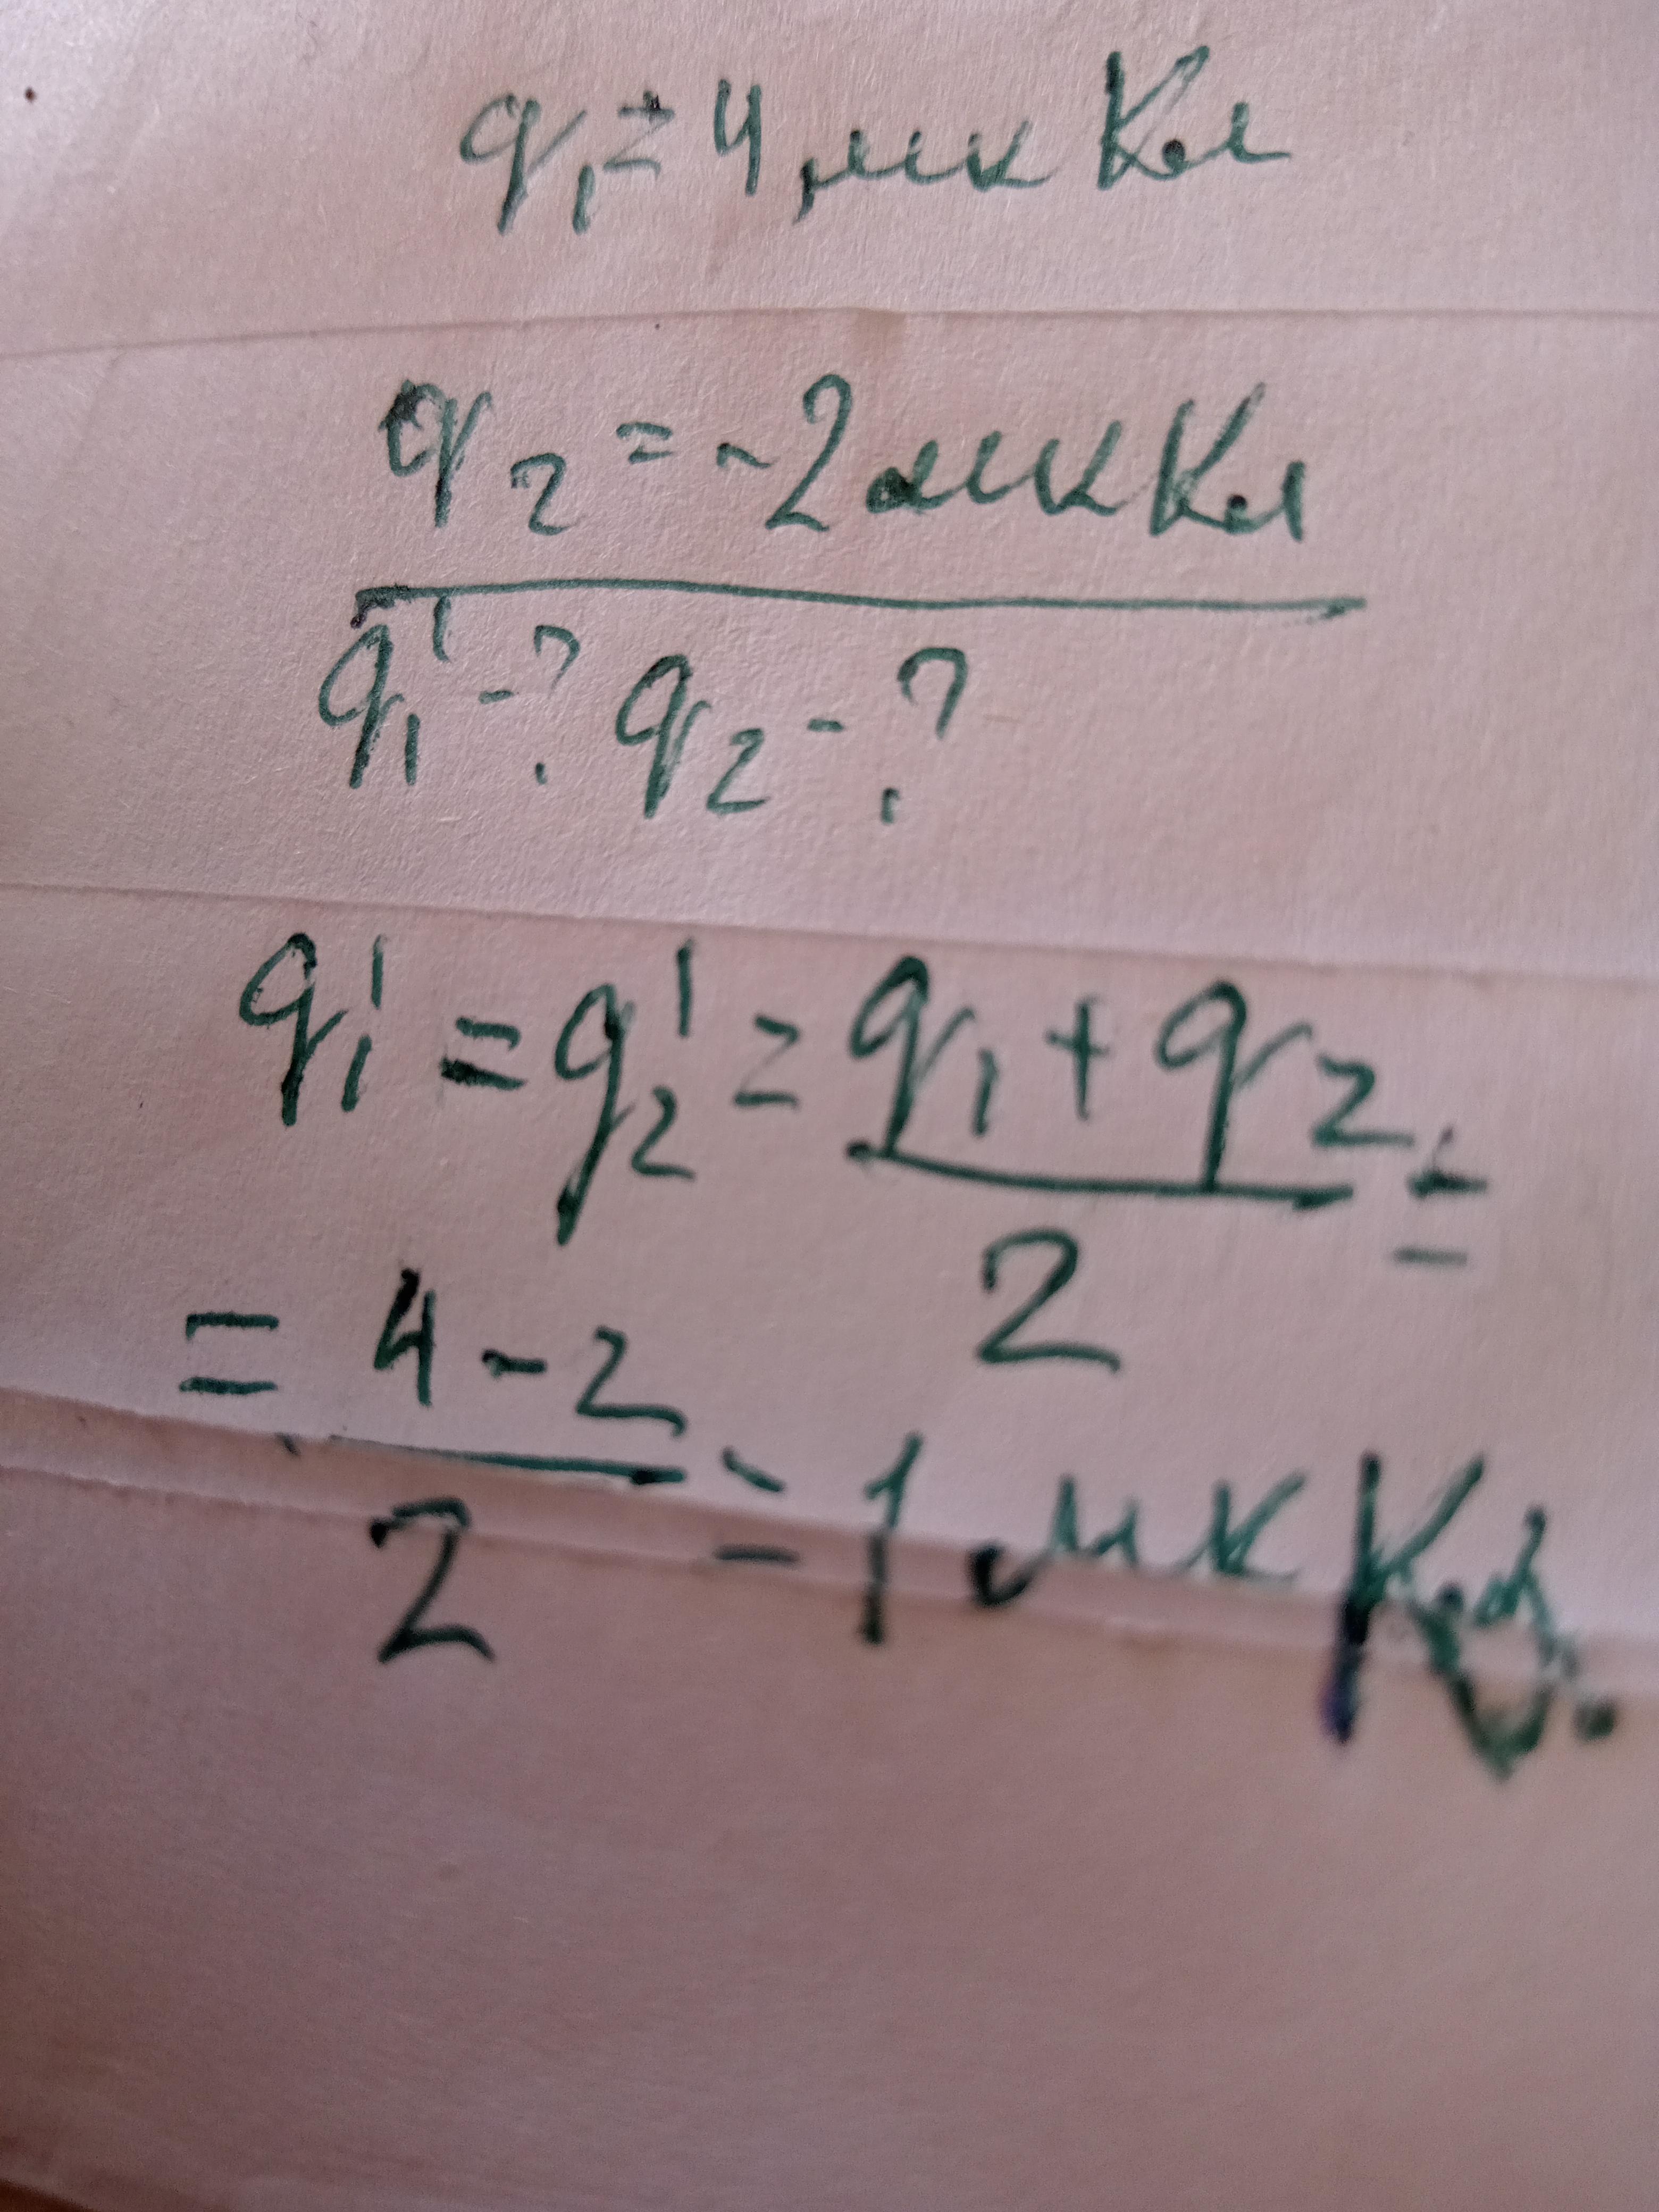 q₁ = 4 мкКл
q₂ = -2 мкКл
q₁' - ? q₂ - ?
q₁' = q₂' = (q₁ + q₂)/2 =
= (4 - 2)/2 = 1 мкКл.